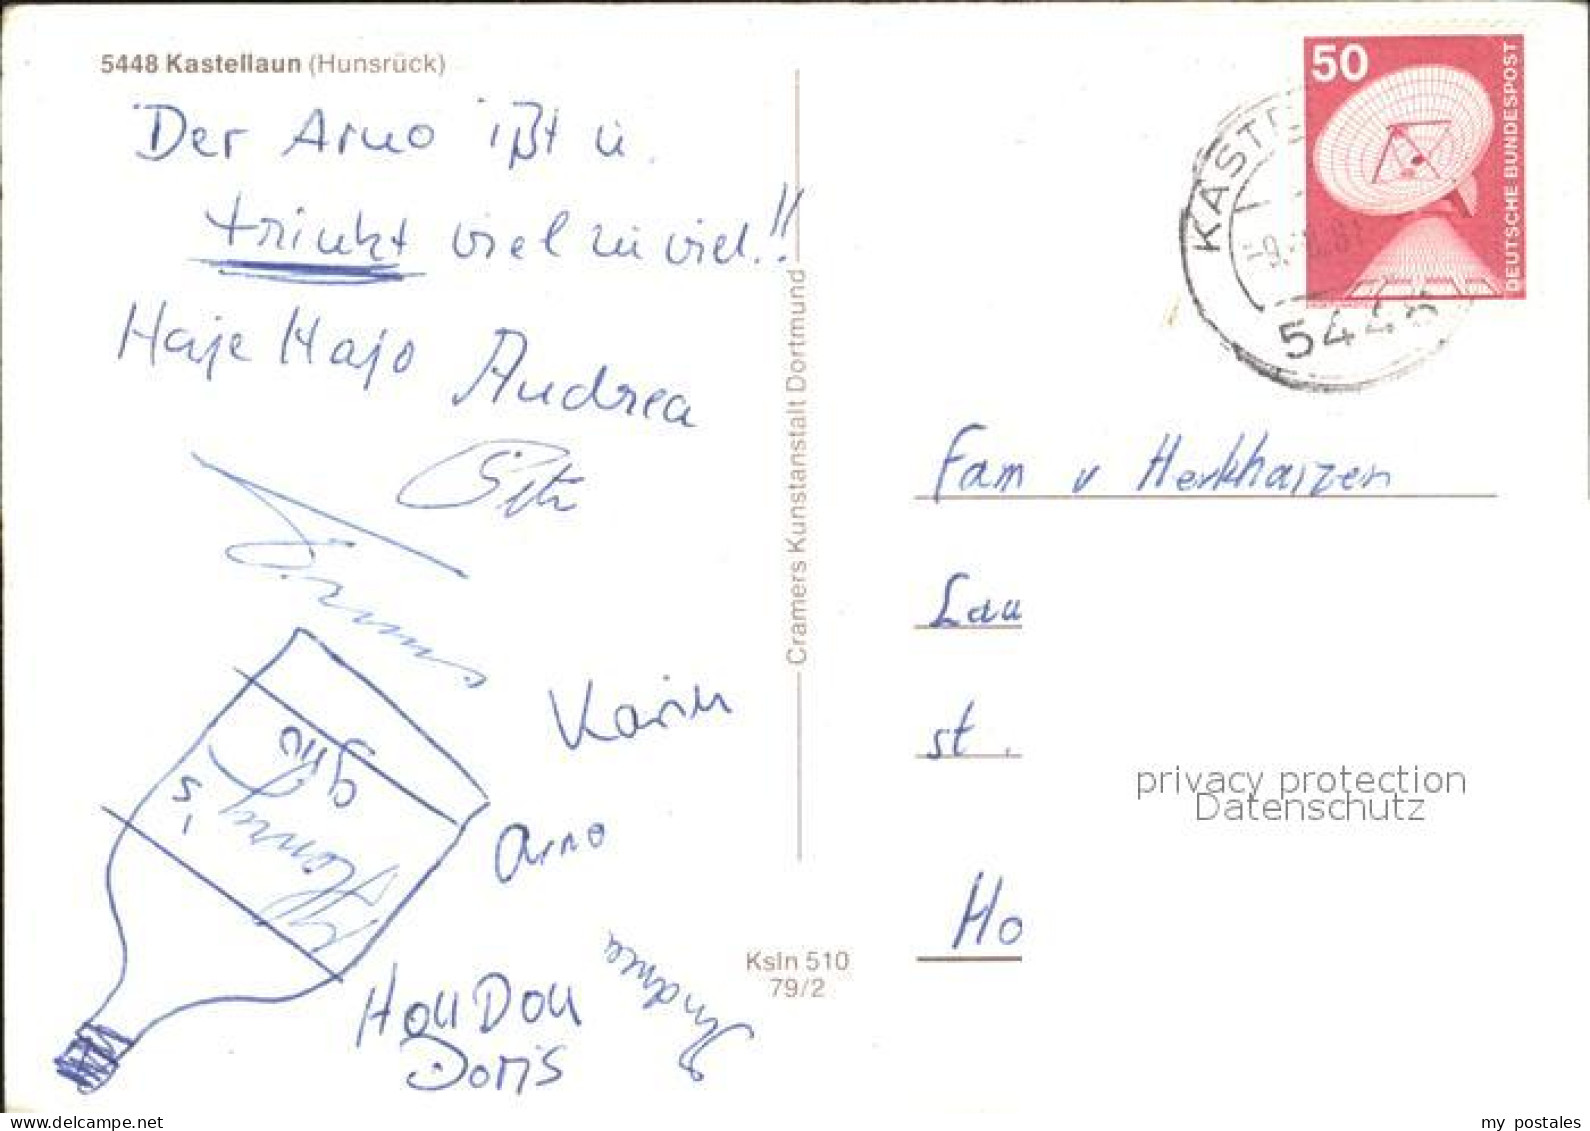 5448 Kastellaun (Hunsrück)
Der Arno ißt u.
trinkt viel zu viel!!
Haje Hajo Andrea
Karin
Arno
Andrea
Hou Dou
Doris
Cramers Kunstanstalt Dortmund
Ksln 510
79/2
50
DEUTSCHE BUNDESPOST
KASTE
544
Fam v Herkhaizen
Lau
st.
Ho
privacy protection
Datenschutz
my postales